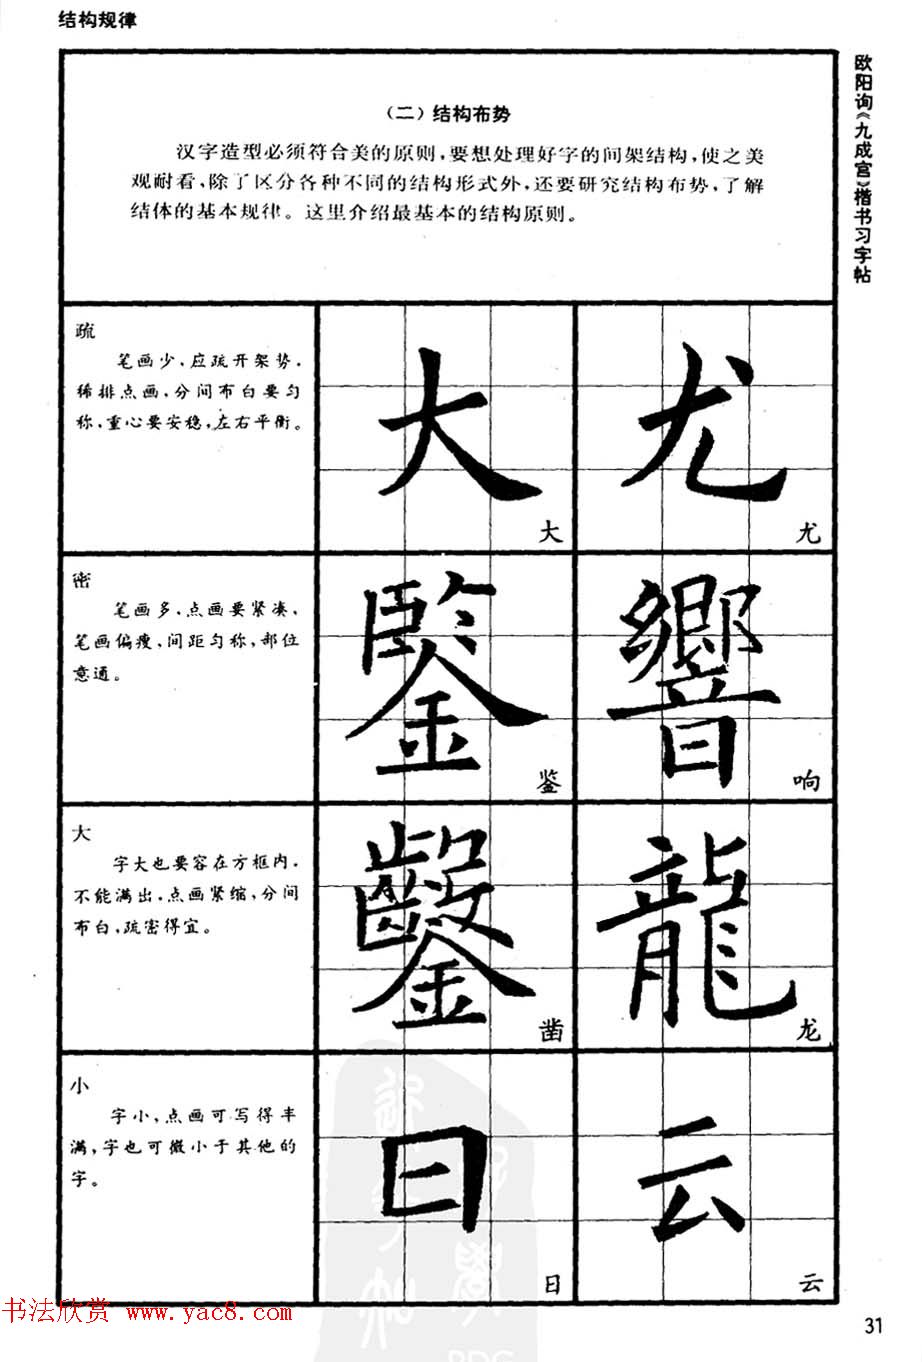 结构规律
欧阳询《九成宫》楷书习字帖
（二）结构布势
汉字造型必须符合美的原则，要想处理好字的间架结构，使之美
观耐看，除了区分各种不同的结构形式外，还要研究结构布势，了解
结体的基本规律。这里介绍最基本的结构原则。
疏
笔画少，应疏开架势，
稀排点画，分间布白要匀
称，重心要安稳，左右平衡。
大
大
尤
尤
密
笔画多，点画要紧凑，
笔画偏瘦，间距匀称，部位
意通。
鑒
鉴
響
响
大
字大也要容在方框内，
不能满出，点画紧缩，分间
布白，疏密得宜。
鑿
凿
龍
龙
小
字小，点画可写得丰
满，字也可微小于其他的
字。
日
日
云
云
书法欣赏 www.yac8.com
31